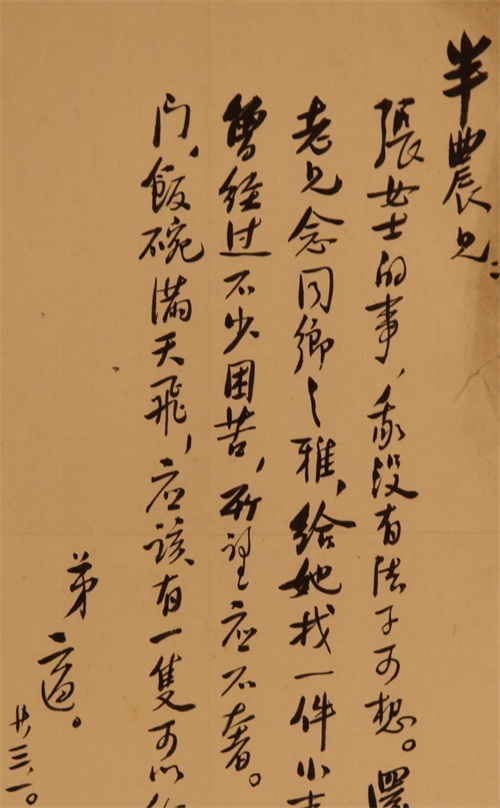 半農兄：
張女士的事，我沒有法子可想。
老兄念同鄉之雅，給她找一件小事
曾經过不少困苦，所望应不奢。
门，飯碗滿天飛，应該有一隻可以
弟
廿、三、一。